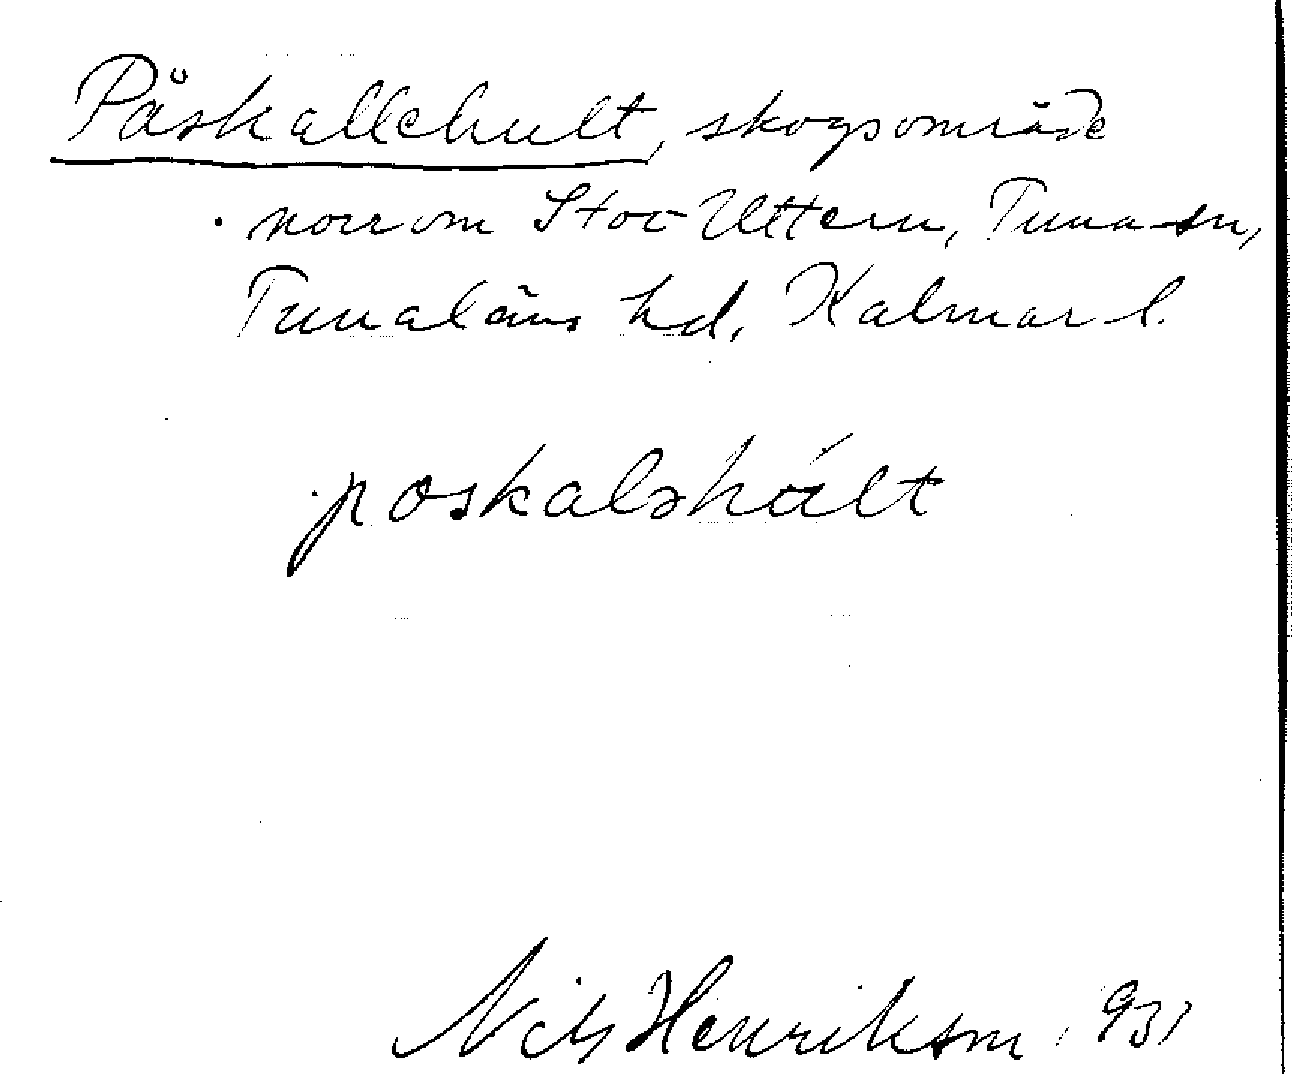 Påskallehult, skogsområde
norr om Stor-Uttern, Tuna sn,
Tunaläns hd, Kalmar l.
poskalshált
Nils Henrikson 1931